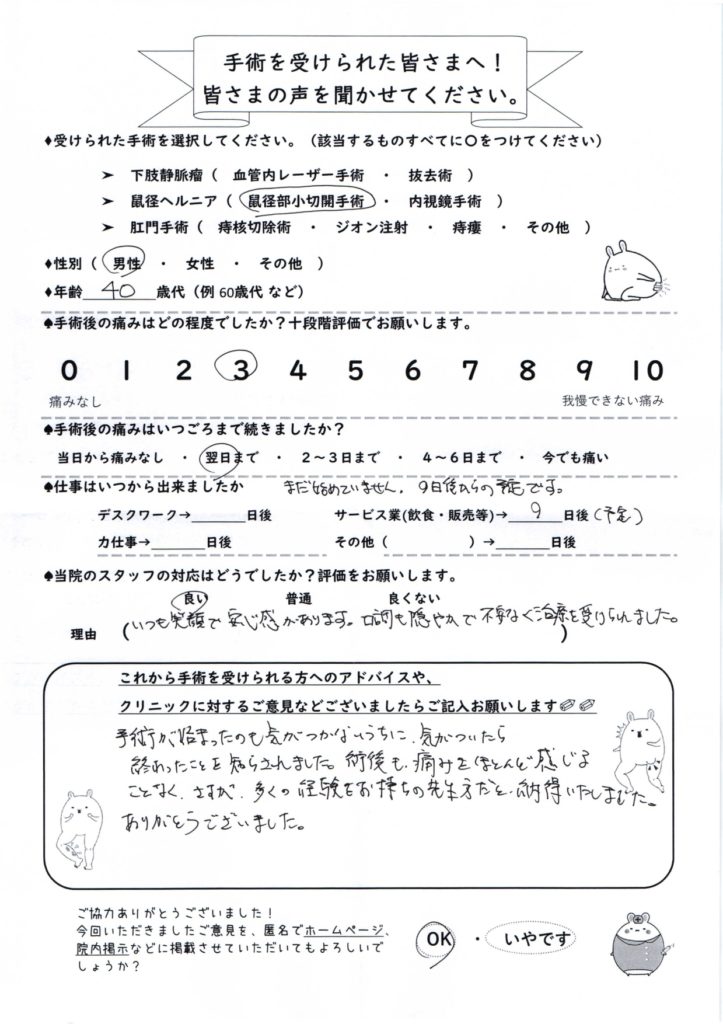 手術を受けられた皆さまへ！
皆さまの声を聞かせてください。
♦受けられた手術を選択してください。（該当するものすべてに〇をつけてください）
➤ 下肢静脈瘤（ 血管内レーザー手術 ・ 抜去術 ）
➤ 鼠径ヘルニア（ 鼠径部小切開手術 ・ 内視鏡手術 ）
➤ 肛門手術（ 痔核切除術 ・ ジオン注射 ・ 痔瘻 ・ その他 ）
♦性別（ 男性 ・ 女性 ・ その他 ）
♦年齢 40 歳代（例 60歳代 など）
♠手術後の痛みはどの程度でしたか？十段階評価でお願いします。
0 1 2 3 4 5 6 7 8 9 10
痛みなし 我慢できない痛み
♠手術後の痛みはいつごろまで続きましたか？
当日から痛みなし ・ 翌日まで ・ 2～3日まで ・ 4～6日まで ・ 今でも痛い
♠仕事はいつから出来ましたか まだ始めていません。9日後からの予定です。
デスクワーク→______日後 サービス業(飲食・販売等)→ 9 日後（予定）
力仕事→______日後 その他（ ）→______日後
♠当院のスタッフの対応はどうでしたか？評価をお願いします。
良い 普通 良くない
理由 （いつも笑顔で安心感があります。口調も穏やかで不安なく治療を受けられました。）
これから手術を受けられる方へのアドバイスや、
クリニックに対するご意見などございましたらご記入お願いします
手術が始まったのも気がつかないうちに、気がついたら
終わったことを知らされました。術後も痛みをほとんど感じる
ことなく、さすが、多くの経験をお持ちの先生方だと、納得いたしました。
ありがとうございました。
ご協力ありがとうございました！
今回いただきましたご意見を、匿名でホームページ、
院内掲示などに掲載させていただいてもよろしいで
しょうか？
OK ・ いやです